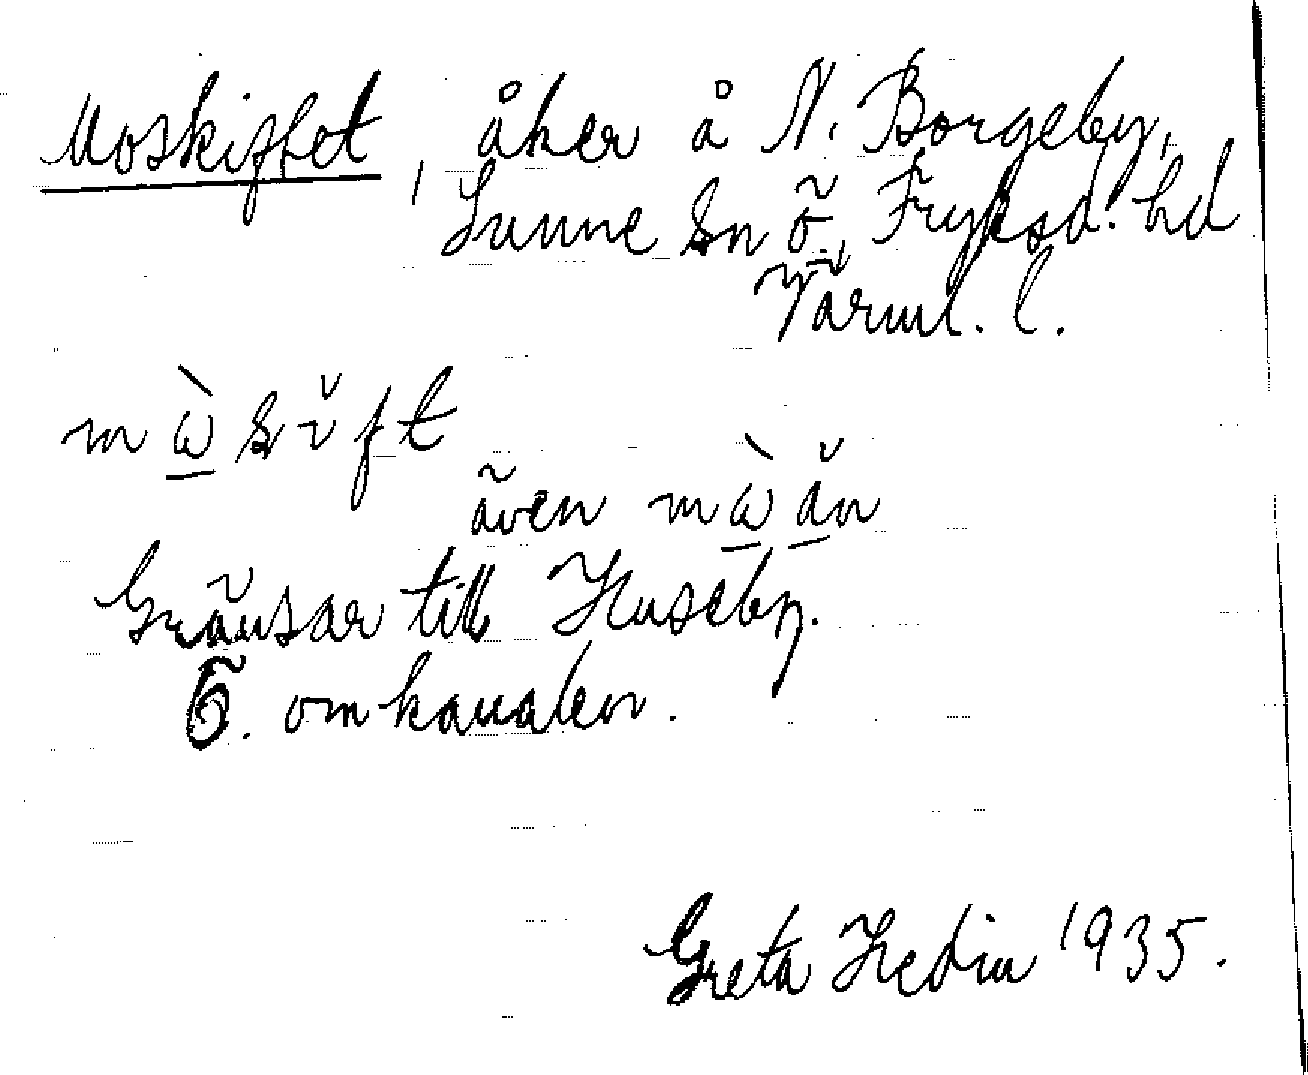 Moskiftet, åker å N. Borgeby,
Sunne sn ö, Fryksd. hd
Värml. l.
mὼsĭft
även mὼăn
Gränsar till Huseby.
Ö. om kanalen.
Greta Hedin 1935.